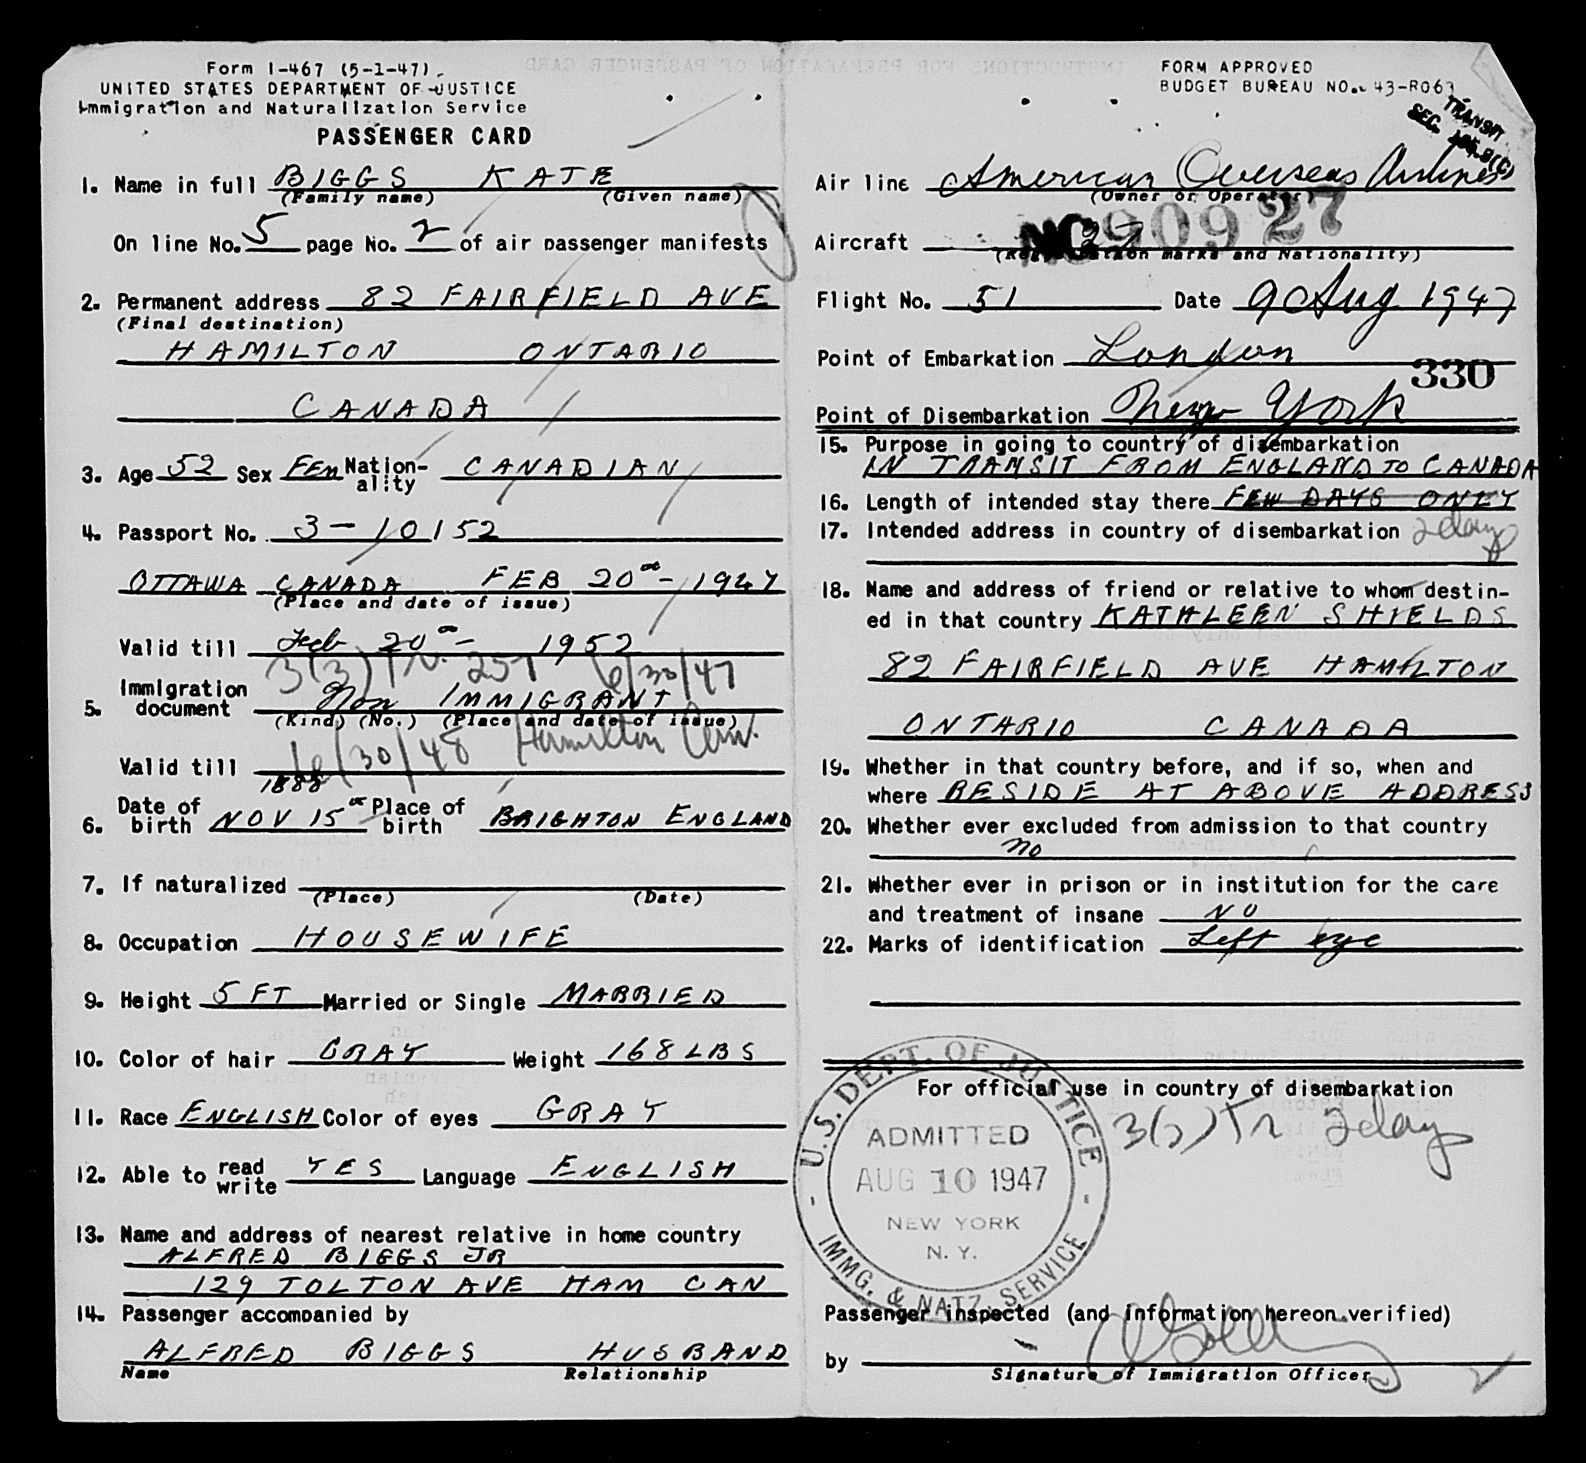 Form I-467 (5-1-47)
UNITED STATES DEPARTMENT OF JUSTICE
Immigration and Naturalization Service
PASSENGER CARD
1. Name in full BIGGS KATE
(Family name) (Given name)
On line No. 5 page No. 2 of air passenger manifests
2. Permanent address 82 FAIRFIELD AVE
(Final destination)
HAMILTON ONTARIO
CANADA
3. Age 52 Sex FEM Nation-ality CANADIAN
4. Passport No. 3-10152
OTTAWA CANADA FEB 20 - 1947
(Place and date of issue)
Valid till Feb 20 - 1952
3(3) 257 6/30/47
5. Immigration document Non IMMIGRANT
(Kind) (No.) (Place and date of issue)
Hamilton Can.
Valid till 6/30/48
1888
6. Date of birth NOV 15 Place of birth BRIGHTON ENGLAND
7. If naturalized
(Place) (Date)
8. Occupation HOUSEWIFE
9. Height 5 FT Married or Single MARRIED
10. Color of hair GRAY Weight 168 LBS
11. Race ENGLISH Color of eyes GRAY
12. Able to read write YES Language ENGLISH
13. Name and address of nearest relative in home country
ALFRED BIGGS JR
129 TOLTON AVE HAM CAN
14. Passenger accompanied by
ALFRED BIGGS HUSBAND
Name Relationship
FORM APPROVED
BUDGET BUREAU NO. 43-R063
TRANSIT
SEC.
Air line American Overseas Airlines
(Owner or Operator)
Aircraft NC90927
(Registration marks and Nationality)
Flight No. 51 Date 9 Aug 1947
Point of Embarkation London
330
Point of Disembarkation New York
15. Purpose in going to country of disembarkation
IN TRANSIT FROM ENGLAND TO CANADA
16. Length of intended stay there FEW DAYS ONLY
17. Intended address in country of disembarkation 2 days
18. Name and address of friend or relative to whom destin-
ed in that country KATHLEEN SHIELDS
82 FAIRFIELD AVE HAMILTON
ONTARIO CANADA
19. Whether in that country before, and if so, when and
where RESIDE AT ABOVE ADDRESS
20. Whether ever excluded from admission to that country
no
21. Whether ever in prison or in institution for the care
and treatment of insane NO
22. Marks of identification Left eye
For official use in country of disembarkation
3(3) Tr 2 days
U.S. DEPT. OF JUSTICE
ADMITTED
AUG 10 1947
NEW YORK
N. Y.
IMMG. & NATZ. SERVICE
Passenger inspected (and information hereon verified)
by
Signature of Immigration Officer